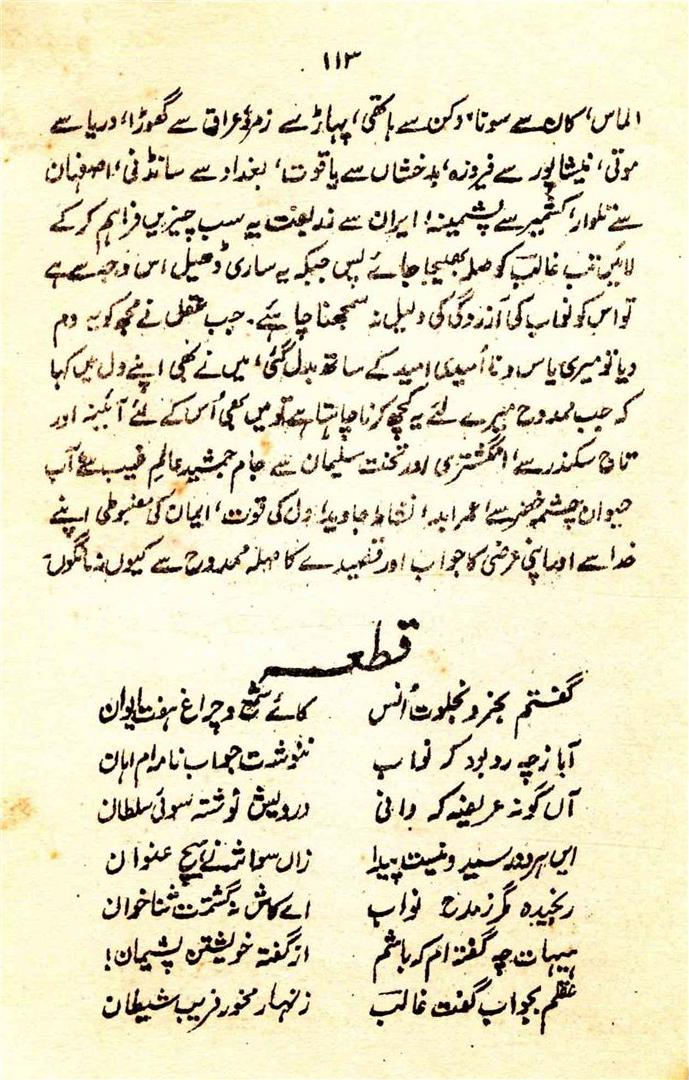 ۱۱۳
الماس، کان سے سونا، دکن سے ہاتھی، پہاڑ سے زمرد، عراق سے گھوڑا، دریا سے
موتی، نیشاپور سے فیروزہ، بدخشاں سے یاقوت، بغداد سے سانڈنی، اصفہان
سے تلوار، کشمیر سے پشمینہ، ایران سے زربفت یہ سب چیزیں فراہم کر کے
لائیں تب غالب کو صلہ بھیجا جائے پس جبکہ یہ ساری ڈھیل اس وجہ سے ہے
تو اس کو نواب کی آزردگی کی دلیل نہ سمجھنا چاہئے۔ جب عقل نے مجھ کو یہ دم
دیا تو میری یاس و نا اُمیدی امید کے ساتھ بدل گئی، میں نے بھی اپنے دل میں کہا
کہ جب ممدوح میرے لئے یہ کچھ کرنا چاہتا ہے تو میں بھی اُس کے لئے آئینہ اور
تاج سکندر سے، انگشتری اور تخت سلیمان سے جام جمشید عالمِ غیب سے آب
حیوان چشمہ خضر سے، عمر ابد، نشاط جاوید، دل کی قوت، ایمان کی مضبوطی اپنے
خدا سے اور اپنی عرضی کا جواب اور قصیدے کا صلہ ممدوح سے کیوں نہ مانگوں
قطعہ
گفتم بخرد بخلوت اُنس کائے شمع و چراغ ہفت ایوان
آیا ز چہ رو بود کہ نواب ننوشت جواب نامہ ام ہان
آں گونہ عریضہ کہ دانی درویش نوشتہ سوئی سلطان
ایں ہر دو رسید و نیست پیدا زاں سو اثرے بہیچ عنوان
رنجیدہ مگر ز مدح نواب اے کاش نہ گشتمے ثناخوان
ہیہات چہ گفتہ ام کہ باشم از گفتہ خویشتن پشیمان!
عقلم بجواب گفت غالب زنہار مخور فریب شیطان